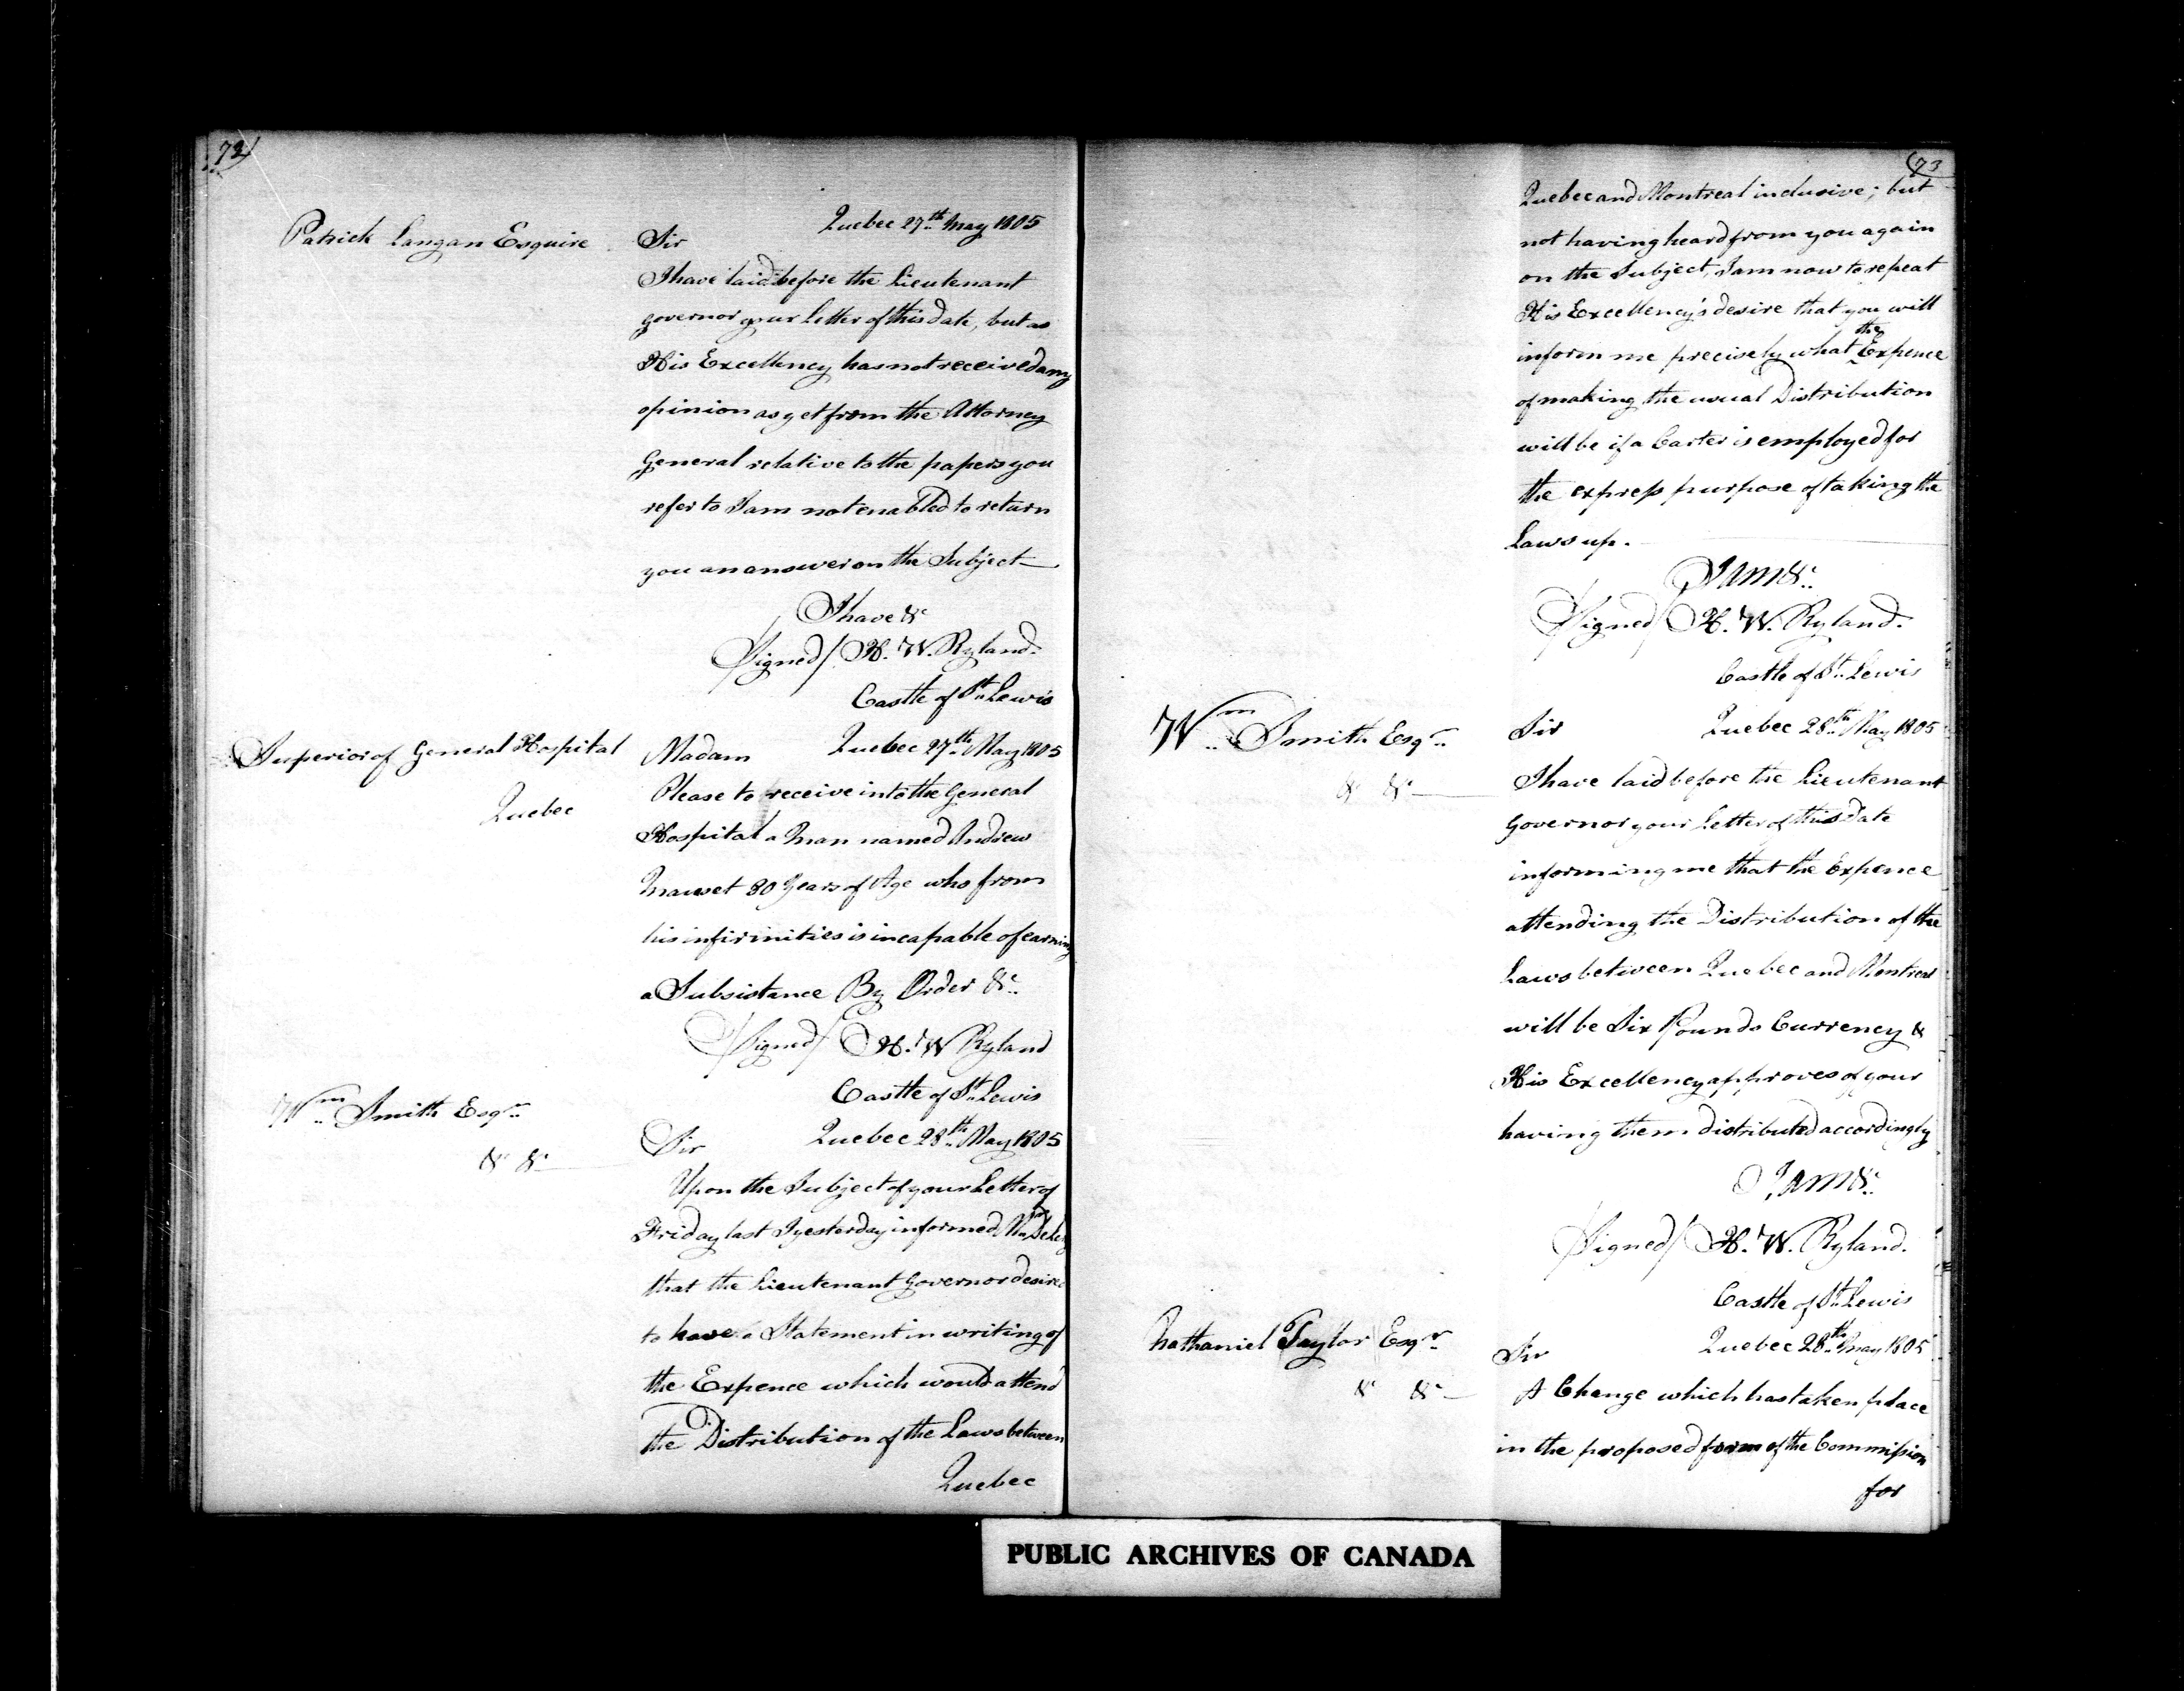 72)
Quebec 27th May 1805
Patrick Langan Esquire
Sir
I have laid before the Lieutenant
Governor your Letter of this date, but as
His Excellency has not received any
opinion as yet from the Attorney
General relative to the papers you
refer to I am not enabled to return
you an answer on the Subject—
I have &c
Signed/ H. W. Ryland.
Castle of St. Lewis
Superior of General Hospital
Quebec
Madam Quebec 27th May 1805
Please to receive into the General
Hospital a Man named Andrew
80 Years of Age who from
his infirmities is incapable of earning
a Subsistance By Order &c.
Signed/ H. W Ryland
Castle of St. Lewis
Wm. Smith Esqr.
&c &c
Sir Quebec 28th May 1805
Upon the Subject of your Letter of
Friday last I yesterday informed
that the Lieutenant Governor desired
to have a Statement in writing of
the Expence which would attend
the Distribution of the Laws between
Quebec
(73
Quebec and Montreal inclusive; but
not having heard from you again
on the Subject, I am now to repeat
His Excellency's desire that you will
inform me precisely what the Expence
of making the usual Distribution
will be if a Carter is employed for
the express purpose of taking the
Laws up.
I am &c.
Signed/ H. W. Ryland.
Castle of St. Lewis
Wm. Smith Esqr.
&c &c
Sir Quebec 28th May 1805
I have laid before the Lieutenant
Governor your Letter of this Date
informing me that the Expence
attending the Distribution of the
Laws between Quebec and Montreal
will be Six Pounds Currency &
His Excellency approves of your
having them distributed accordingly
I am &c.
Signed/ H. W. Ryland.
Castle of St. Lewis
Nathaniel Taylor Esqr.
&c &c
Sir Quebec 28th May 1805
A Change which has taken place
in the proposed form of the Commission
for
PUBLIC ARCHIVES OF CANADA